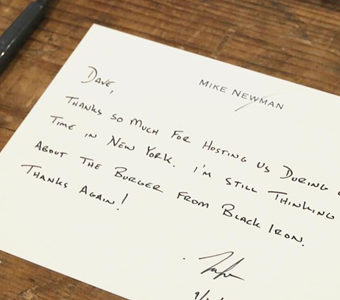 MIKE NEWMAN
DAVE,
THANKS SO MUCH FOR HOSTING US DURING
TIME IN NEW YORK. I'M STILL THINKING
ABOUT THE BURGER FROM BLACK IRON.
THANKS AGAIN!